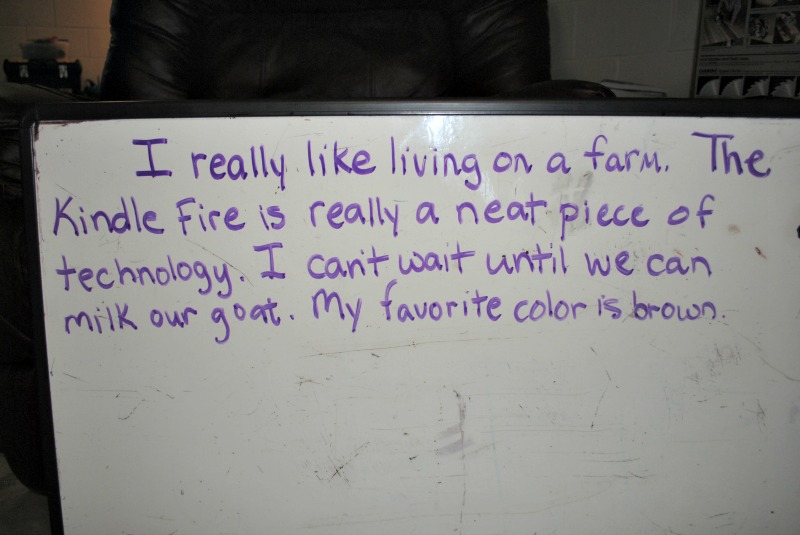 I really like living on a farm. The
Kindle Fire is really a neat piece of
technology. I can't wait until we can
milk our goat. My favorite color is brown.